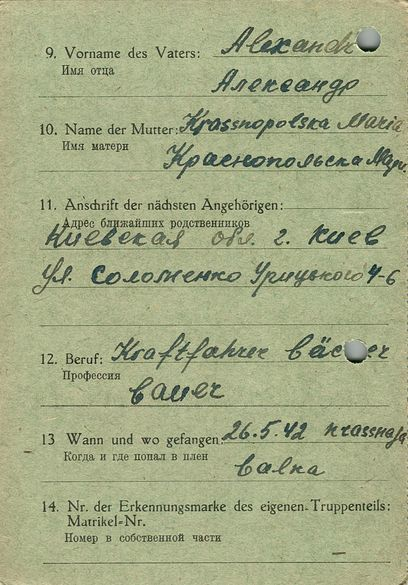 9. Vorname des Vaters: Alexandr
Имя отца
Александр
10. Name der Mutter: Krassnopolska Maria
Имя матери
Краснопольска Мари
11. Anschrift der nächsten Angehörigen:
Адрес ближайших родственников
Киевская обл. г. Киев
ул. Соломенко Урицького 4-6
12. Beruf: Kraftfahrer bäcker
Профессия
bauer
13 Wann und wo gefangen: 26.5.42 Krassnaja
Когда и где попал в плен
balka
14. Nr. der Erkennungsmarke des eigenen Truppenteils:
Matrikel-Nr.
Номер в собственной части
–